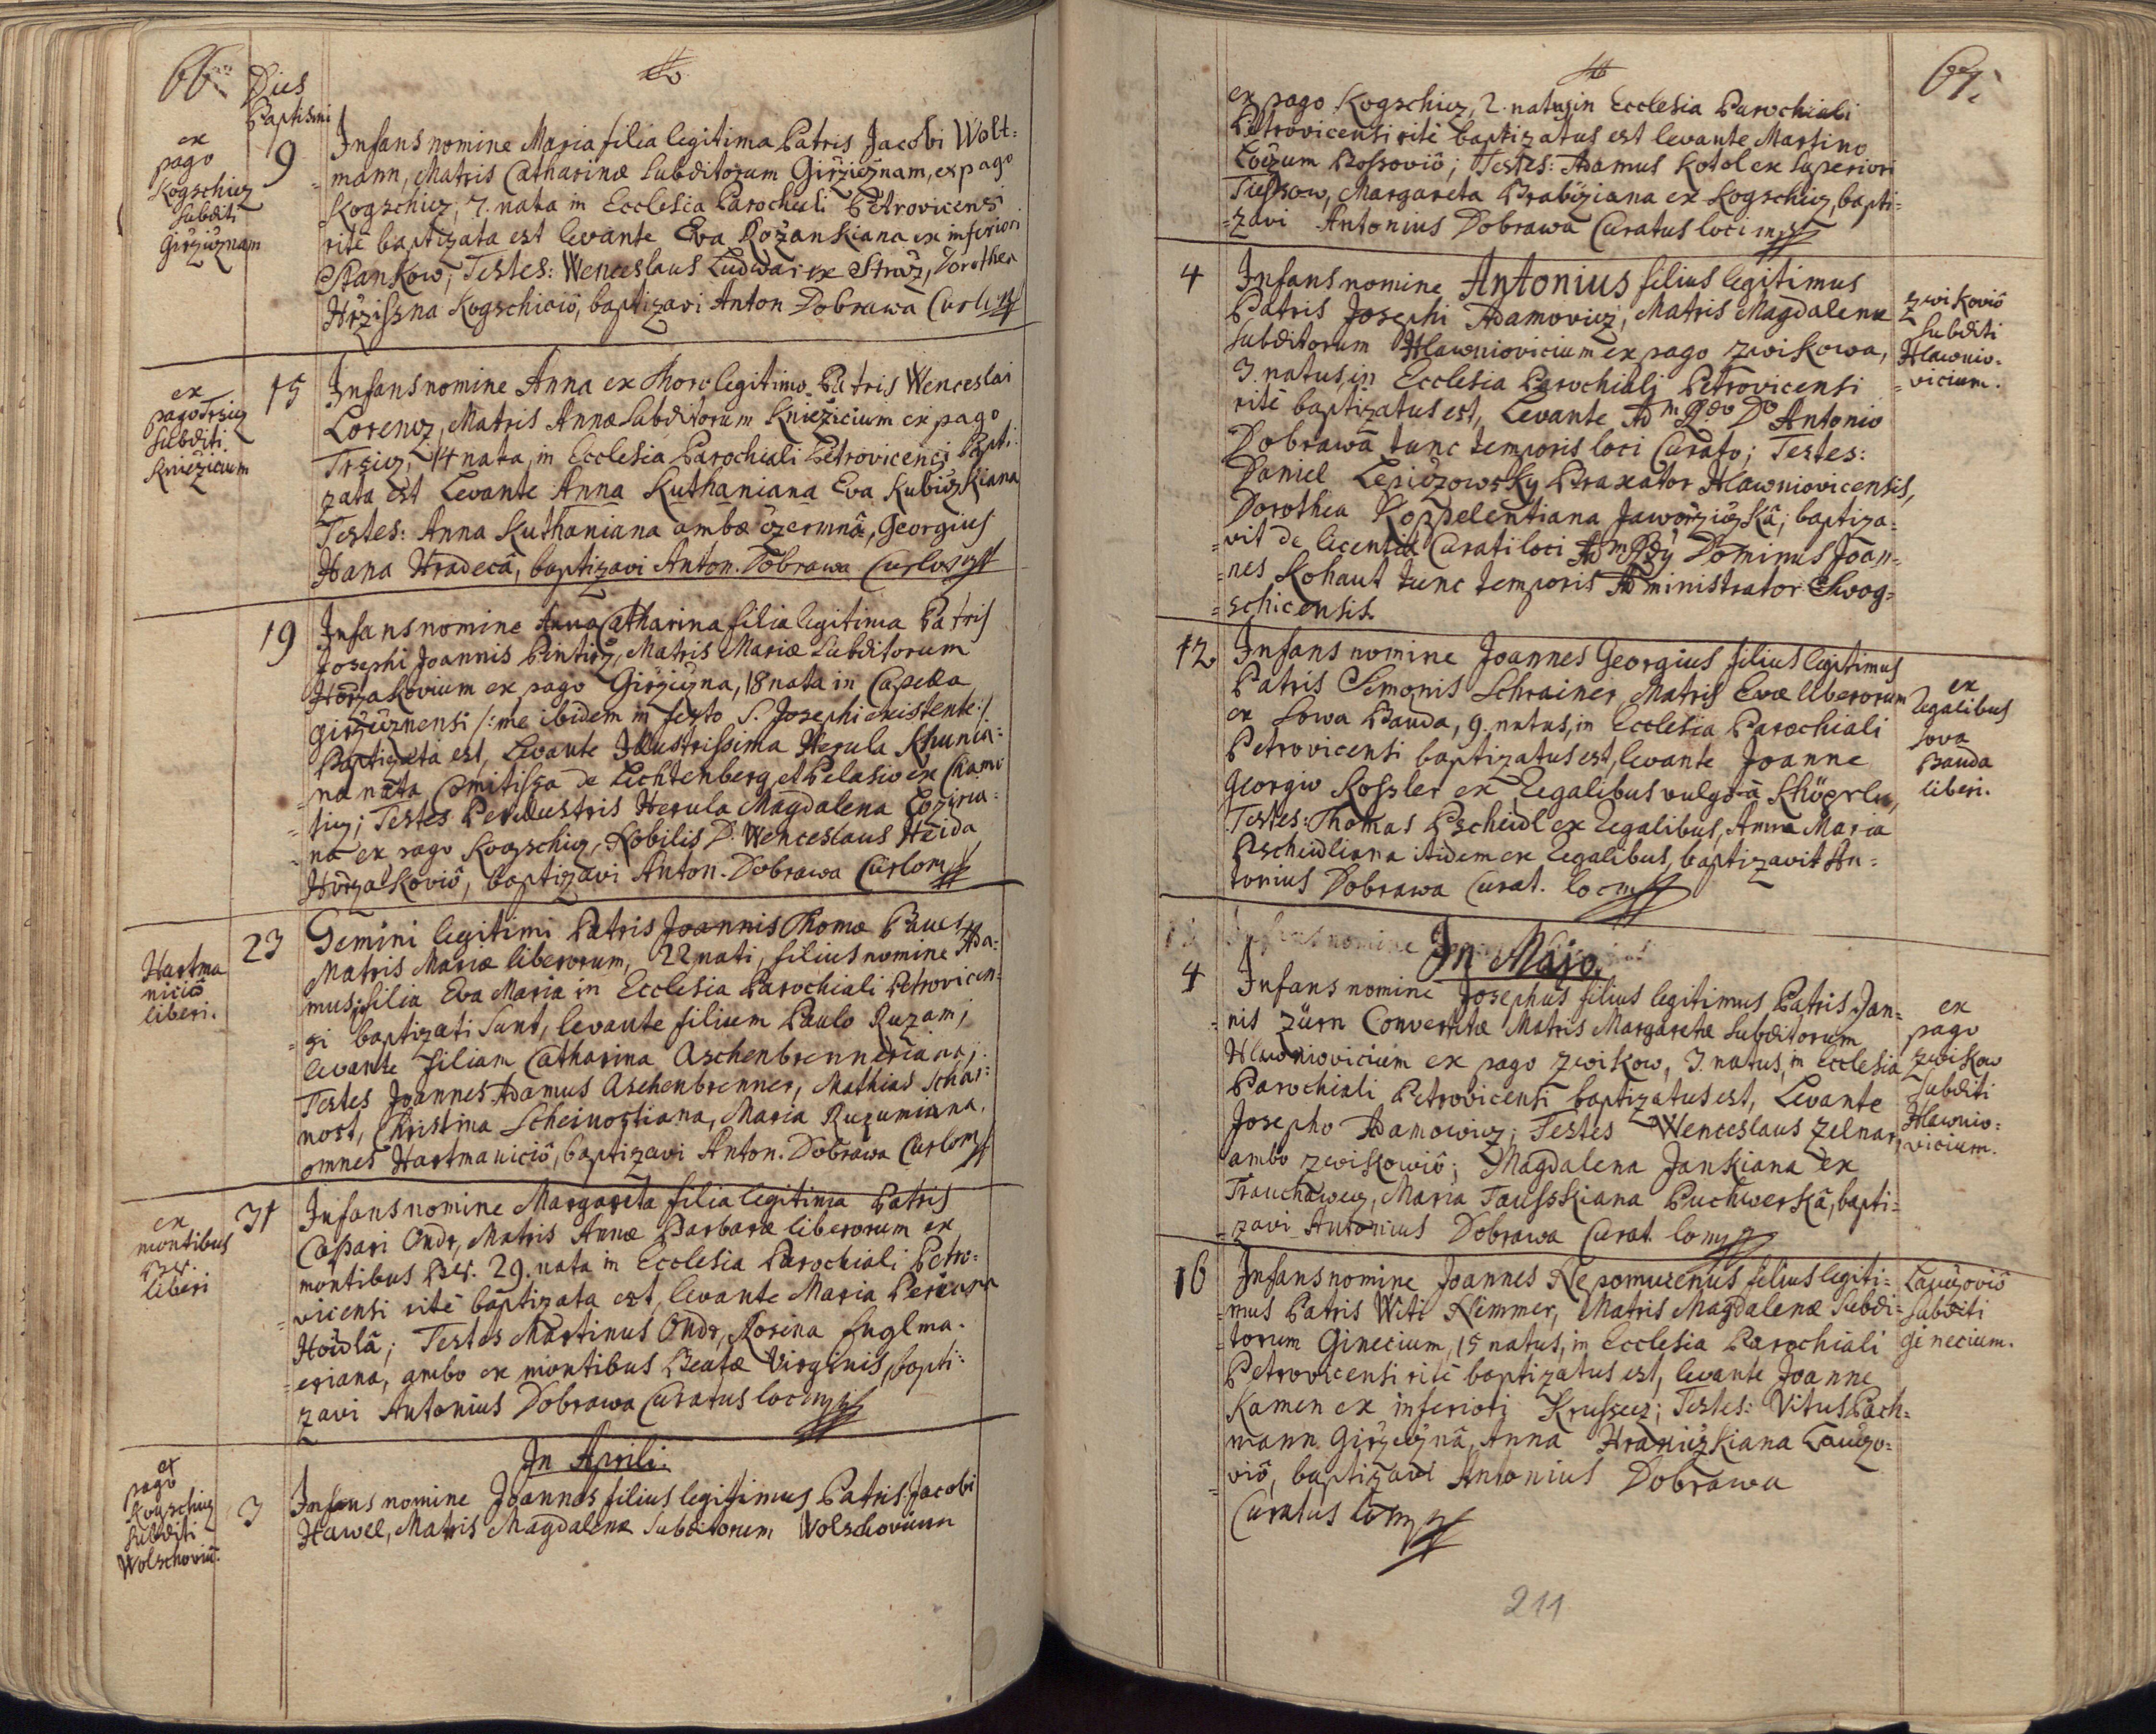 66
Dies
Baptismi
ex
pago
Kogschicz
subditi
Girzicznam
9
Infans nomine Maria filia legitima Patris Jacobi Wolt=
=mann, Matris Catharinæ Subditorum Girziciznam, ex pago
Kogschicz, 7. nata in Ecclesia Parochiali Petrovicensi
rite baptizata est levante Eva Rozankiana ex inferiori
Stankow; Testes: Wenceslaus Ludwar ex Straz, Dorothea
Hrzissna Kogschiciô, baptizavi Anton Dobrawa
ex
pago Trsicz
subditi
Kniezicium
15
Infans nomine Anna ex Thoro legitimo Patris Wenceslai
Lorencz, Matris Annæ Subditorum Kniezicium ex pago
Trsicz, 14 nata, in Ecclesia Parochiali Petrovicensi Bapti
zata est Levante Anna Kuthaniana Eva Kubiczkiana
Testes: Anna Kuthaniana ambæ Czermnâ, Georgius
Hana Hradecâ, baptizavi Anton. Dobrawa
19
Infans nomine Anna Catharina filia legitima Patris
Josephi Joannis Penticz, Matris Mariæ Subditorum
Horzakovium ex pago Girziczna, 18 nata in Capella
girziiznensi /: me ibidem in festo S. Josephi existente :/
Baptizata est, Levante Illustrissima Herula Khunia=
=na nata Comitissa de Lichtenberg et Belasio ex Chami
=ticz; Testes Perillustris Herula Magdalena
=na ex pago Kogschicz, Nobilis D. Wenceslaus Heida
Horzakoviô, baptizavi Anton. Dobrawa Cur loci
Hartma
niciô
liberi.
23
Gemini legitimi Patris Joannis Thomæ Pauer
Matris Mariæ liberorum, 22 nati, filius nomine Ada=
mus, filia Eva Maria in Ecclesia Parochiali Petrovicen=
=si baptizati sunt, levante filium Paulo Ruzam;
levante filiam Catharina Aschenbrenneriana;
Testes Joannes Adamus Aschenbrenner, Mathias Schai=
nost, Christina Scheinostiana, Maria Ruzumiana,
omnes Hartmaniciô, baptizavi Anton. Dobrawa Cur loci
ex
montibus
liberi
31
Infans nomine Margareta filia legitima Patris
Caspari Ondr, Matris Annæ Barbaræ liberorum ex
montibus 29. nata in Ecclesia Parochiali Petro=
=vicensi rite baptizata est, levante Maria
Hoidlâ; Testes Martinus Ondr, Rosina Fuglma=
=eriana, ambo ex montibus Beatæ Virginis, bapti=
zavi Antonius Dobrawa Curatus loci
In Aprili.
ex
pago
Kogschicz
subditi
Wolschoviũ.
3
Infans nomine Joannes filius legitimus Patris Jacobi
Hawel, Matris Magdalenæ Subditorum Wolschovium
67.
ex pago Kogschicz, 2. natus, in Ecclesia Parochiali
Petrovicensi rite baptizatus est levante Martino
Bossoviô; Testes: Adamus Kotol ex Superiori
Tiessow, Margareta Brabiziana ex Kogschicz, bapti=
=zavi Antonius Dobrawa Curatus loci
4
Infans nomine Antonius filius legitimus
Patris Josephi Adamovicz, Matris Magdalenæ
Subditorum Hlawniovicium ex pago Zwikowa,
3. natus, in Ecclesia Parochiali Petrovicensi
rite baptizatus est, Levante Ad.m R.do D.o Antonio
Dobrawâ tunc temporis loci Curato; Testes:
Daniel Lepiczowsky Braxator Hlawniovicensis,
Dorothea Koppelentiana Jaworziczkâ; baptiza=
=vit de licentia Curati loci Ad.m R.dus Dominus Joan=
=nes Kohaut tunc temporis Administrator Swog=
=schicensis.
Zwikoviô
Subditi
Hlawnio=
=vicium.
12
Infans nomine Joannes Georgius filius legitimus
Patris Simonis Schrainer, Matris Evæ liberorum
ex Sowa Bauda, 9. natus, in Ecclesia Parochiali
Petrovicensi baptizatus est, levante Joanne
Georgio Kossler ex Regalibus vulgo â Khöperln,
Testes: Thomas Pscheidl ex Regalibus, Anna Maria
Pscheidliana itidem ex Regalibus, baptizavit An=
tonius Dobrawa Curat. loci
ex
Regalibus
Sova
Bauda
liberi.
In Majo.
4
Infans nomine Josephus filius legitimus Patris Joan=
=nis Zürn Convertitæ Matris Margaretæ Subditorum
Hlawniovicium ex pago Zwikow, 3. natus, in Ecclesia
Parochiali Petrovicensi baptizatus est, Levante
Josepho Adamowicz; Testes Wenceslaus Zelnar,
ambo Zwikowiô; Magdalena Jankiana ex
Trauchawicz, Maria Tausskiana Puchwerkâ, bapti=
=zavi Antonius Dobrawa Curat. loci
ex
pago
Zwikow
subditi
Hlawnio=
vicium.
16
Infans nomine Joannes Nepomucenus filius legiti=
=mus Patris Witi Klimmer, Matris Magdalenæ Subdi=
=torum Ginecium, 15 natus, in Ecclesia Parochiali
Petrovicensi rite baptizatus est, levante Joanne
Kamen ex inferiori Krussecz; Testes: Vitus Pach=
mann Girziczna, Anna Hraniczkiana Lauczo=
=viô, baptizavi Antonius Dobrawa
Curatus loci
Lauczoviô
subditi
ginecium.
211